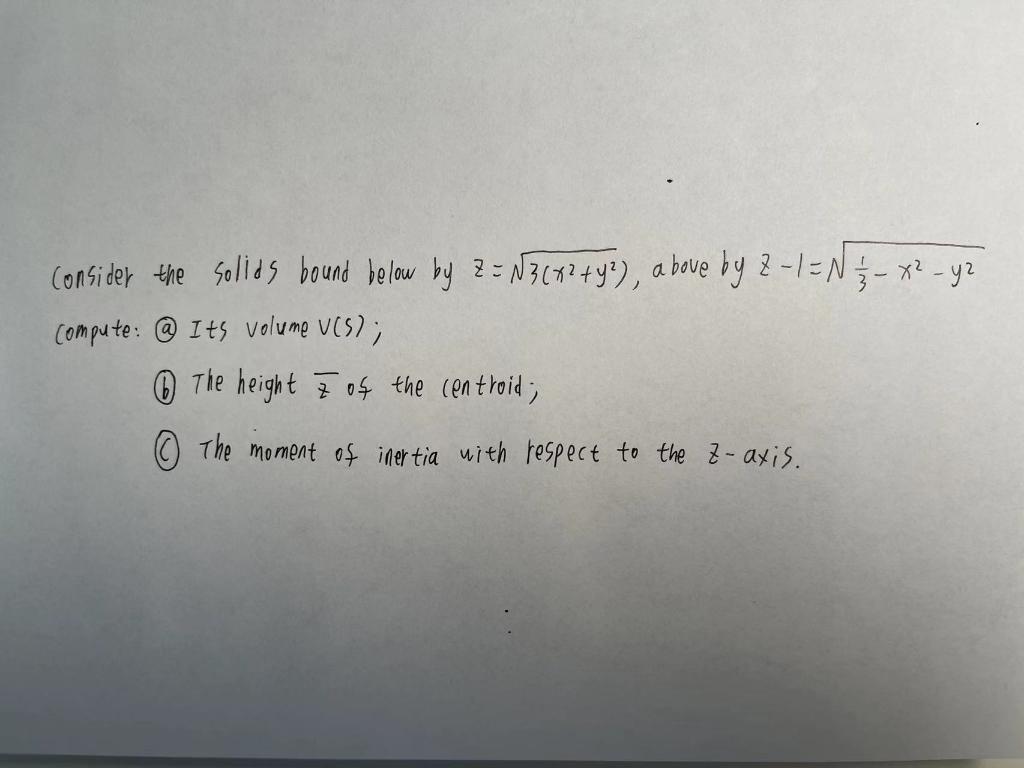 Consider the solids bound below by z = √3(x²+y²), above by z - 1 = √1/3 - x² - y²
compute: ⓐ Its volume V(S);
ⓑ The height z̅ of the centroid;
ⓒ The moment of inertia with respect to the z-axis.